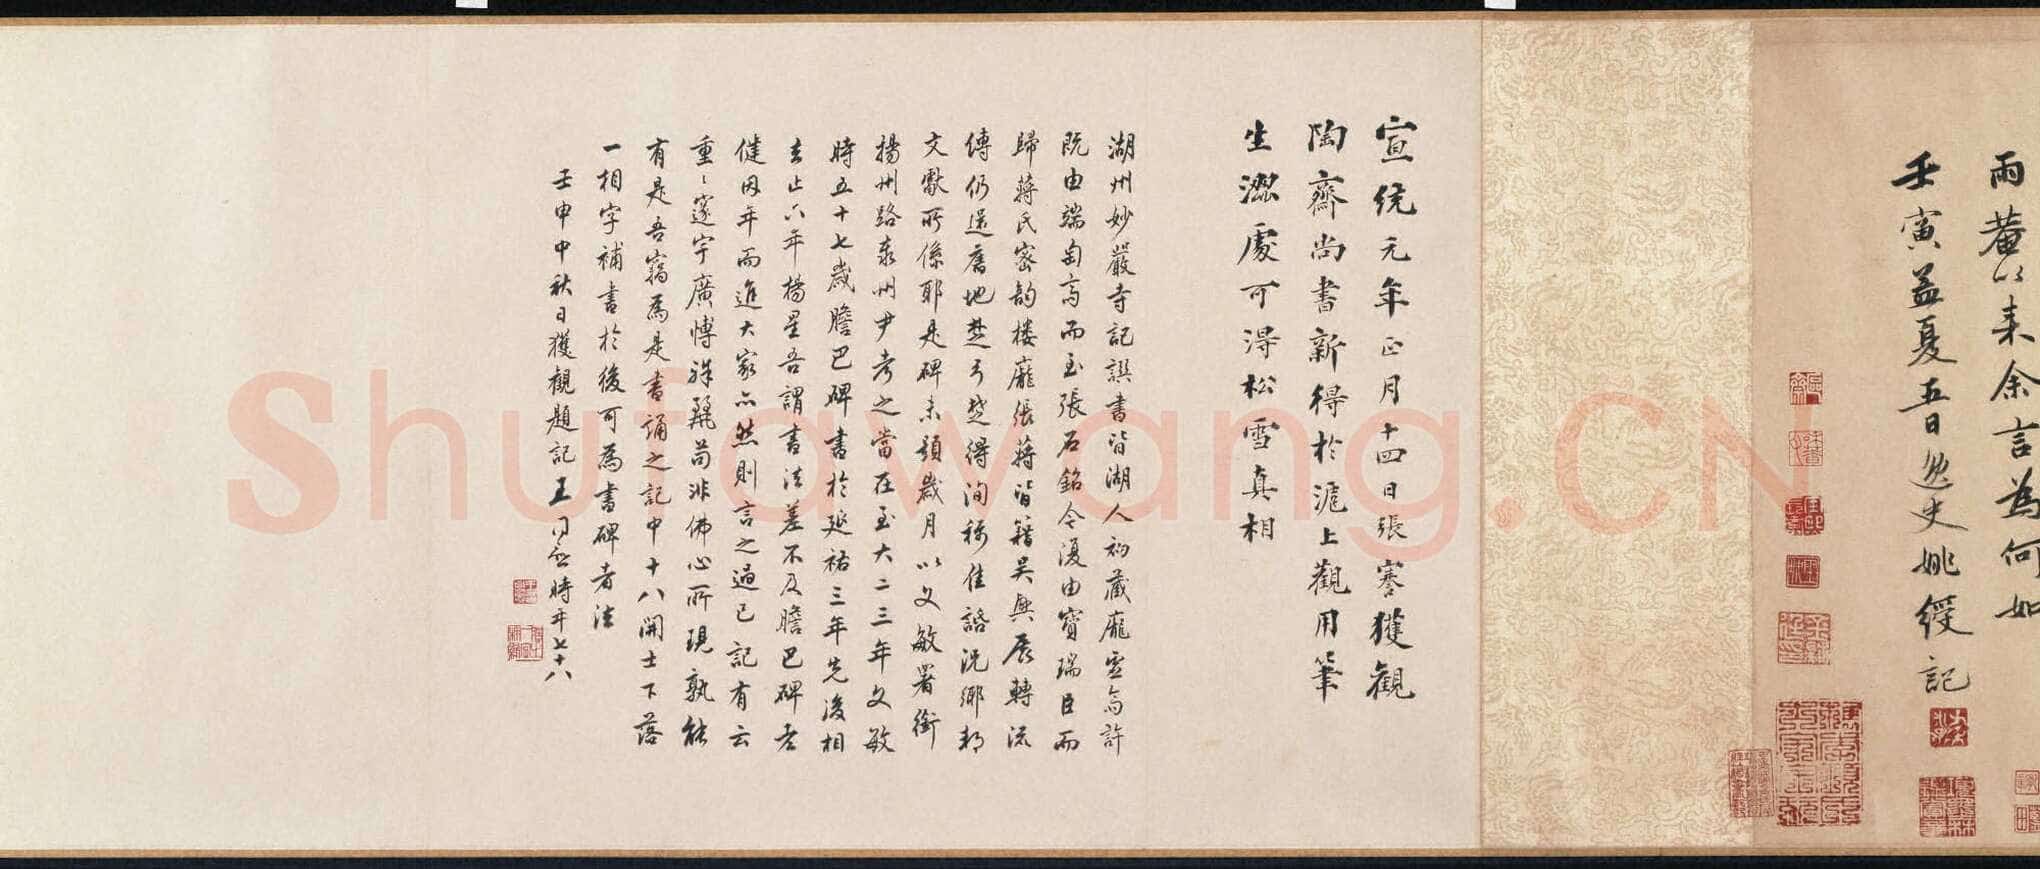 雨菴以来余言為何如
壬寅孟夏五日逸史姚綬記
宣統元年正月十四日張謇獲觀
陶齋尚書新得於滬上觀用筆
生澀處可得松雪真相
湖州妙嚴寺記譔書皆湖人初藏龐虛齋許
既由端匋齋而至張石銘令復由寶瑞臣而
歸蔣氏密韵樓龐張蔣皆籍吳興展轉流
傳仍還舊地楚弓楚得洵稱佳話況鄉邦
文獻所係耶是碑未題歲月以文敏署銜
揚州路泰州尹考之當在至大二三年文敏
時五十七歲膽巴碑書於延祐三年先後相
去止六年楊星吾謂書法差不及膽巴碑老
健因年而進大家亦然則言之過已記有云
重重邃宇廣博殊麗苟非佛心所現孰能
有是吾竊為是書誦之記中十八開士下落
一相字補書於後可為書碑者法
壬申中秋日獲觀題記王同愈時年七十八
Shufawang.CN